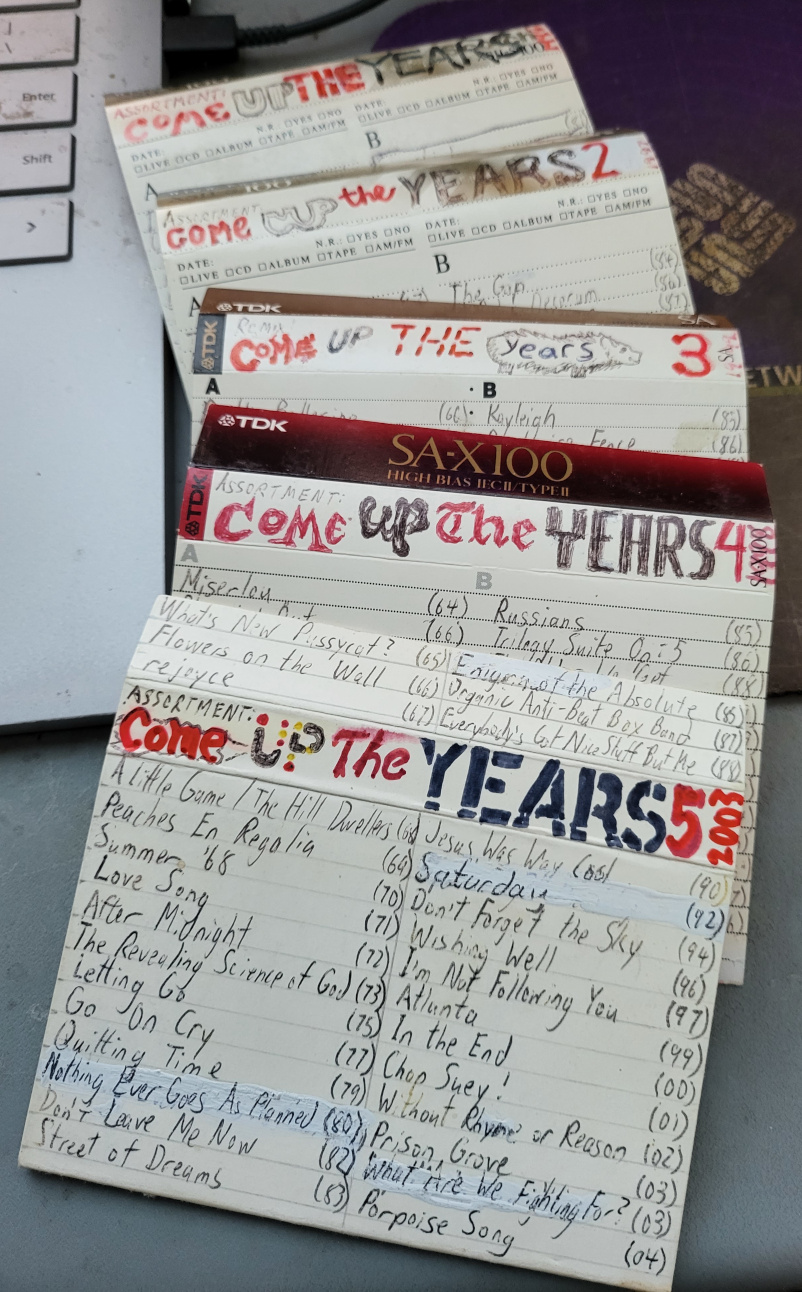 Enter
Shift
ASSORTMENT:
COME UP THE YEARS
N.R.: YES NO
DATE:
LIVE CD ALBUM TAPE AM/FM
N.R.: YES NO
DATE:
LIVE CD ALBUM TAPE AM/FM
A
B
ASSORTMENT
COME UP the YEARS 2
N.R.: YES NO
DATE:
LIVE CD ALBUM TAPE AM/FM
N.R.: YES NO
DATE:
LIVE CD ALBUM TAPE AM/FM
A
B
The Gun
TDK
SA
TDK
COME UP THE years 3
SA
A
B
(66) Kayleigh (85)
Fence (86)
TDK
SA-X100
HIGH BIAS IECII/TYPEII
TDK
ASSORTMENT:
COME UP The YEARS 4
SA-X100
A
B
Miserlou (64) Russians (85)
(66) Trilogy Suite Op:5 (86)
(88)
What's New Pussycat? (65) Enigma of the Absolute (85)
Flowers on the Wall (66) Organic Anti-Beat Box Band (87)
rejoyce (67) Everybody's Got Nice Stuff But Me (88)
ASSORTMENT:
Come UP The YEARS 5 2003
A Little Game / The Hill Dwellers (68) Jesus Was Way Cool (90)
Peaches En Regalia (69) Saturday (92)
Summer '68 (70) Don't Forget the Sky (94)
Love Song (71) Wishing Well (96)
After Midnight (72) I'm Not Following You (97)
The Revealing Science of God (73) Atlanta (99)
Letting Go (75) In the End (00)
Go On Cry (77) Chop Suey! (01)
Quitting Time (79) Without Rhyme or Reason (02)
Nothing Ever Goes As Planned (80) Prison Grove (03)
Don't Leave Me Now (82) What Are We Fighting For? (03)
Street of Dreams (83) Porpoise Song (04)